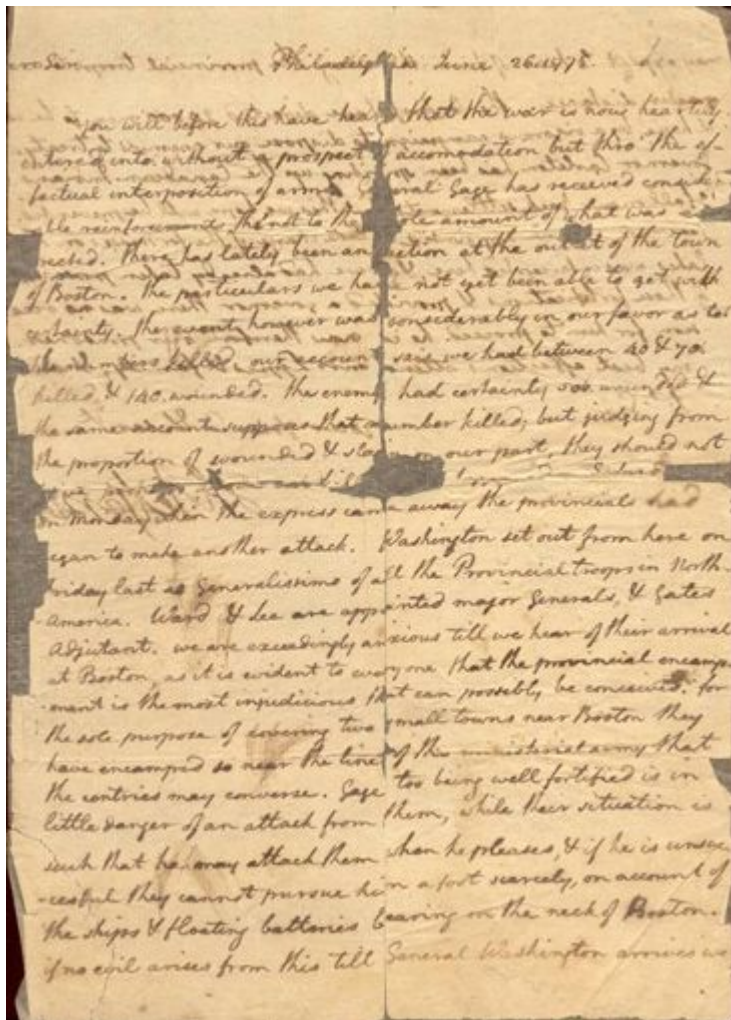 Dear Sir Philadelphia June 26. 1775.
You will before this have hea that the war is now heartily
entered into without a prospect accomodation but thro' the ef-
fectual interposition of arms General Gage has received consid
ble reinforcements, tho' not to the ole amount of what was ex
pected. There has lately been an action at the out et of the town
of Boston. The particulars we ha not yet been able to get with
certainty. The event however was considerably in our favor as to
the numbers killed. our account sais we had between 40 & 70
killed, & 140. wounded. The enemy had certainly 500. wounded &
the same account supposes that number killed; but judging from
the proportion of wounded & sla on our part, they should not
on Monday when the express came away the provincials had
egun to make another attack. Washington set out from here on
friday last as Generalissimo of all the Provincial troops in North-
America. Ward & Lee are appointed major Generals, & Gates
Adjutant. we are exceedingly anxious till we hear of their arrival
at Boston, as it is evident to every one that the provincial encamp-
-ment is the most injudicious that can possibly be conceived. for
the sole purpose of covering two small towns near Boston they
have encamped so near the line of the ministerial army that
the centries may converse. Gage too being well fortified is in
little danger of an attack from them, while their situation is
such that he may attack them when he pleases, & if he is unsuc
-cesful they cannot pursue him a foot scarcely, on account of
the ships & floating batteries bearing on the neck of Boston.
if no evil arises from this till General Washington arrives we